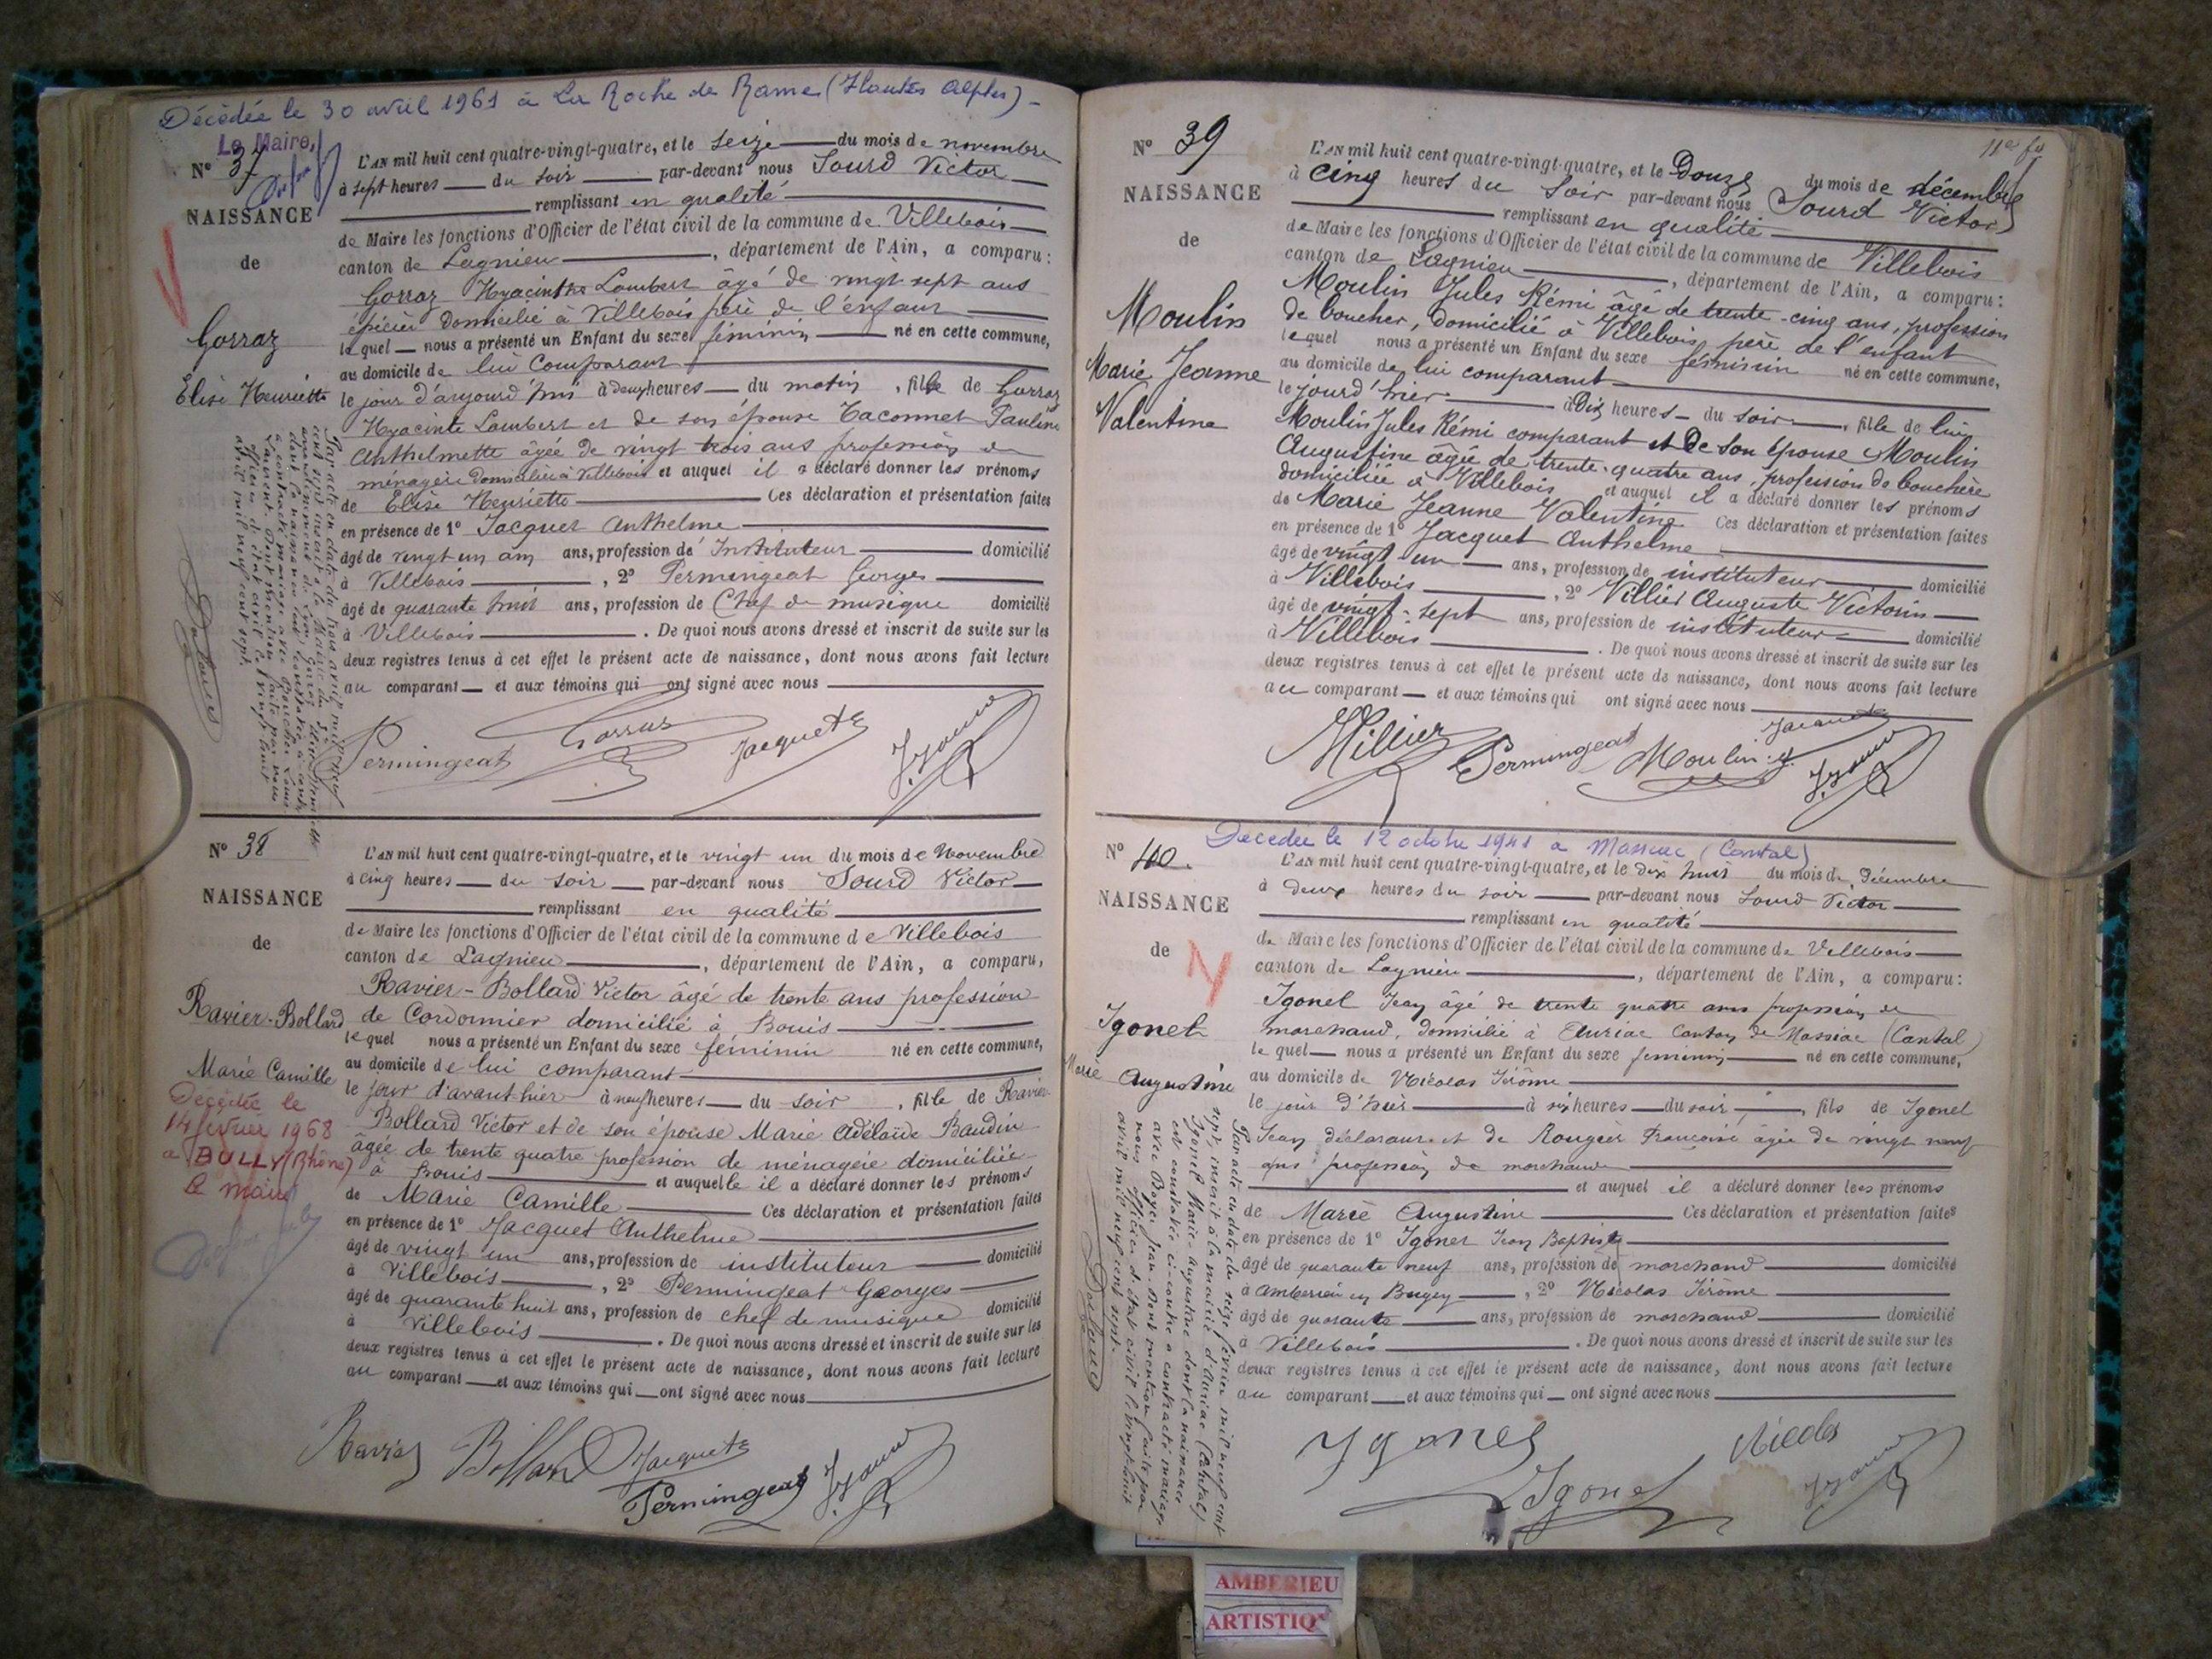 Décédée le 30 avril 1961 à La Roche de Rame (Hautes Alpes) -
Le Maire,
N° 37
NAISSANCE
de
Gorraz
Elise Henriette
L'AN mil huit cent quatre-vingt-quatre, et le seize du mois de novembre
à sept heures du soir par-devant nous Sourd Victor
remplissant en qualité
de Maire les fonctions d'Officier de l'état civil de la commune de Villebois
canton de Lagnieu, département de l'Ain, a comparu:
Gorraz Hyacinthe Lambert âgé de vingt-sept ans
épicier domicilié à Villebois père de l'enfant
lequel nous a présenté un Enfant du sexe féminin né en cette commune,
au domicile de lui comparant
le jour d'aujourd'hui à deux heures du matin, fille de Gorraz
Hyacinte Lambert et de son épouse Taconnet Pauline
Anthelmette âgée de vingt trois ans profession de
ménagère domiciliée à Villebois et auquel il a déclaré donner les prénoms
de Elise Henriette Ces déclaration et présentation faites
en présence de 1° Jacquet Anthelme
âgé de vingt un ans ans, profession de Instituteur domicilié
à Villebois, 2° Permingeat Georges
âgé de quarante huit ans, profession de Chef de musique domicilié
à Villebois. De quoi nous avons dressé et inscrit de suite sur les
deux registres tenus à cet effet le présent acte de naissance, dont nous avons fait lecture
au comparant et aux témoins qui ont signé avec nous
Permingeat Gorraz Jacquet
N° 38
NAISSANCE
de
Ravier-Bollard
Marie Camille
Décédée le
14 février 1968
à BULLY (Rhône)
Le maire
L'AN mil huit cent quatre-vingt-quatre, et le vingt un du mois de Novembre
à cinq heures du soir par-devant nous Sourd Victor
remplissant en qualité
de Maire les fonctions d'Officier de l'état civil de la commune de Villebois
canton de Lagnieu, département de l'Ain, a comparu,
Ravier-Bollard Victor âgé de trente ans profession
de Cordonnier domicilié à Bouis
lequel nous a présenté un Enfant du sexe féminin né en cette commune,
au domicile de lui comparant
le jour d'avant-hier à neuf heures du soir, fille de Ravier
Bollard Victor et de son épouse Marie Adélaïde Baudin
âgée de trente quatre profession de ménagère domiciliée
à Bouis et auquelle il a déclaré donner les prénoms
de Marie Camille Ces déclaration et présentation faites
en présence de 1° Jacquet Anthelme
âgé de vingt un ans, profession de instituteur domicilié
à Villebois, 2° Permingeat Georges
âgé de quarante huit ans, profession de chef de musique domicilié
à Villebois. De quoi nous avons dressé et inscrit de suite sur les
deux registres tenus à cet effet le présent acte de naissance, dont nous avons fait lecture
au comparant et aux témoins qui ont signé avec nous
Ravier Bollard Jacquet
Permingeat
N° 39
NAISSANCE
de
Moulin
Marie Jeanne
Valentine
L'AN mil huit cent quatre-vingt-quatre, et le Douze du mois de décembre
à cinq heures du soir par-devant nous Sourd Victor
remplissant en qualité
de Maire les fonctions d'Officier de l'état civil de la commune de Villebois
canton de Lagnieu, département de l'Ain, a comparu:
Moulin Jules Rémi âgé de trente-cinq ans, profession
de boucher, domicilié à Villebois, père de l'enfant
lequel nous a présenté un Enfant du sexe féminin né en cette commune,
au domicile de lui comparant
le jourd'hier à Dix heures du soir, fille de lui
Moulin Jules Rémi comparant et De son épouse Moulin
Augustine âgée de trente-quatre ans, profession de bouchère
domiciliée à Villebois et auquel il a déclaré donner les prénoms
de Marie Jeanne Valentine Ces déclaration et présentation faites
en présence de 1° Jacquet Anthelme
âgé de vingt-un ans, profession de instituteur domicilié
à Villebois, 2° Villier Auguste Victorin
âgé de vingt-sept ans, profession de instituteur domicilié
à Villebois. De quoi nous avons dressé et inscrit de suite sur les
deux registres tenus à cet effet le présent acte de naissance, dont nous avons fait lecture
au comparant et aux témoins qui ont signé avec nous
Villier Permingeat Moulin J. Jacquet
Décédée le 12 octobre 1941 à Massiac (Cantal)
N° 40.
NAISSANCE
de
Igonet
Marie Augustine
L'AN mil huit cent quatre-vingt-quatre, et le dix huit du mois de Décembre
à deux heures du soir par-devant nous Sourd Victor
remplissant en qualité
de Maire les fonctions d'Officier de l'état civil de la commune de Villebois
canton de Lagnieu, département de l'Ain, a comparu:
Igonel Jean âgé de trente quatre ans profession de
marchand, domicilié à Auriac Canton de Massiac (Cantal)
lequel nous a présenté un Enfant du sexe féminin né en cette commune,
au domicile de Nicolas Jérôme
le jour d'hier à six heures du soir, fils de Igonel
Jean déclarant et de Rougier Françoise âgée de vingt neuf
ans profession de marchande
et auquel il a déclaré donner les prénoms
de Marie Augustine Ces déclaration et présentation faites
en présence de 1° Igonet Jean Baptiste
âgé de quarante neuf ans, profession de marchand domicilié
à Amberieu en Bugey, 2° Nicolas Jérôme
âgé de quarante ans, profession de marchand domicilié
à Villebois. De quoi nous avons dressé et inscrit de suite sur les
deux registres tenus à cet effet le présent acte de naissance, dont nous avons fait lecture
au comparant et aux témoins qui ont signé avec nous
Ygonel Igonel Nicolas
Par acte en date du seize février mil neuf cent
sept, inscrit à la mairie d'Auriac (Cantal)
Igonet Marie-Augustine dont la naissance
est constatée ci-contre a contracté mariage
avec Boyer Jean. Dont mention faite par
nous officier d'état civil le vingt huit
avril mil neuf cent sept.
AMBERIEU
ARTISTIQ